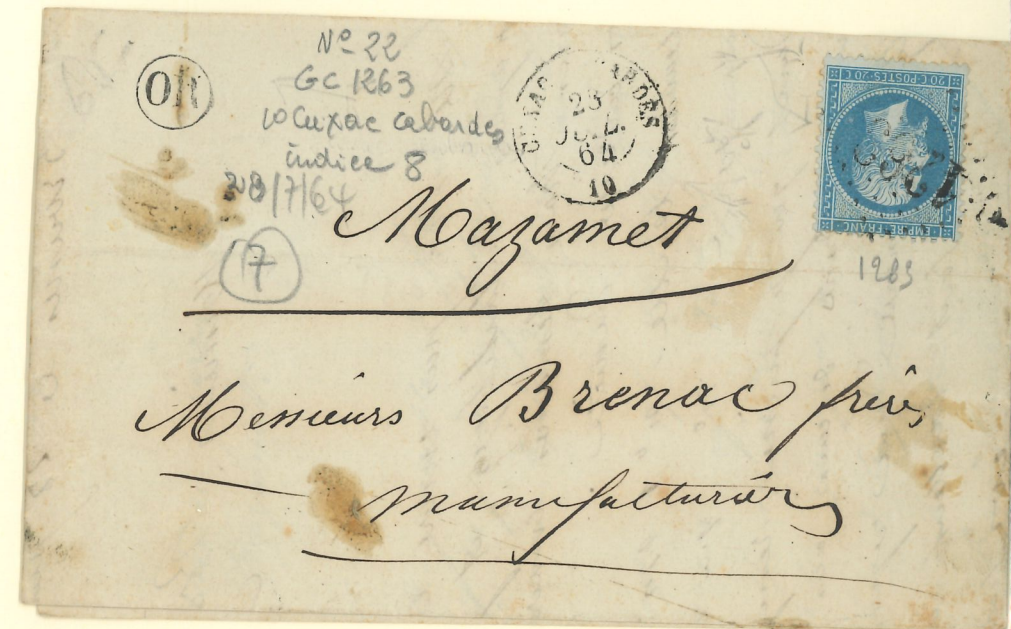 OR
Nº 22
GC 1263
10 Cuxac cabardes
indice 8
28/7/64
17
28
JUIL.
64
10
20 C·POSTES·20 C
EMPIRE·FRANC
Mazamet
1283
Messieurs Brenac frères
manufacturiers